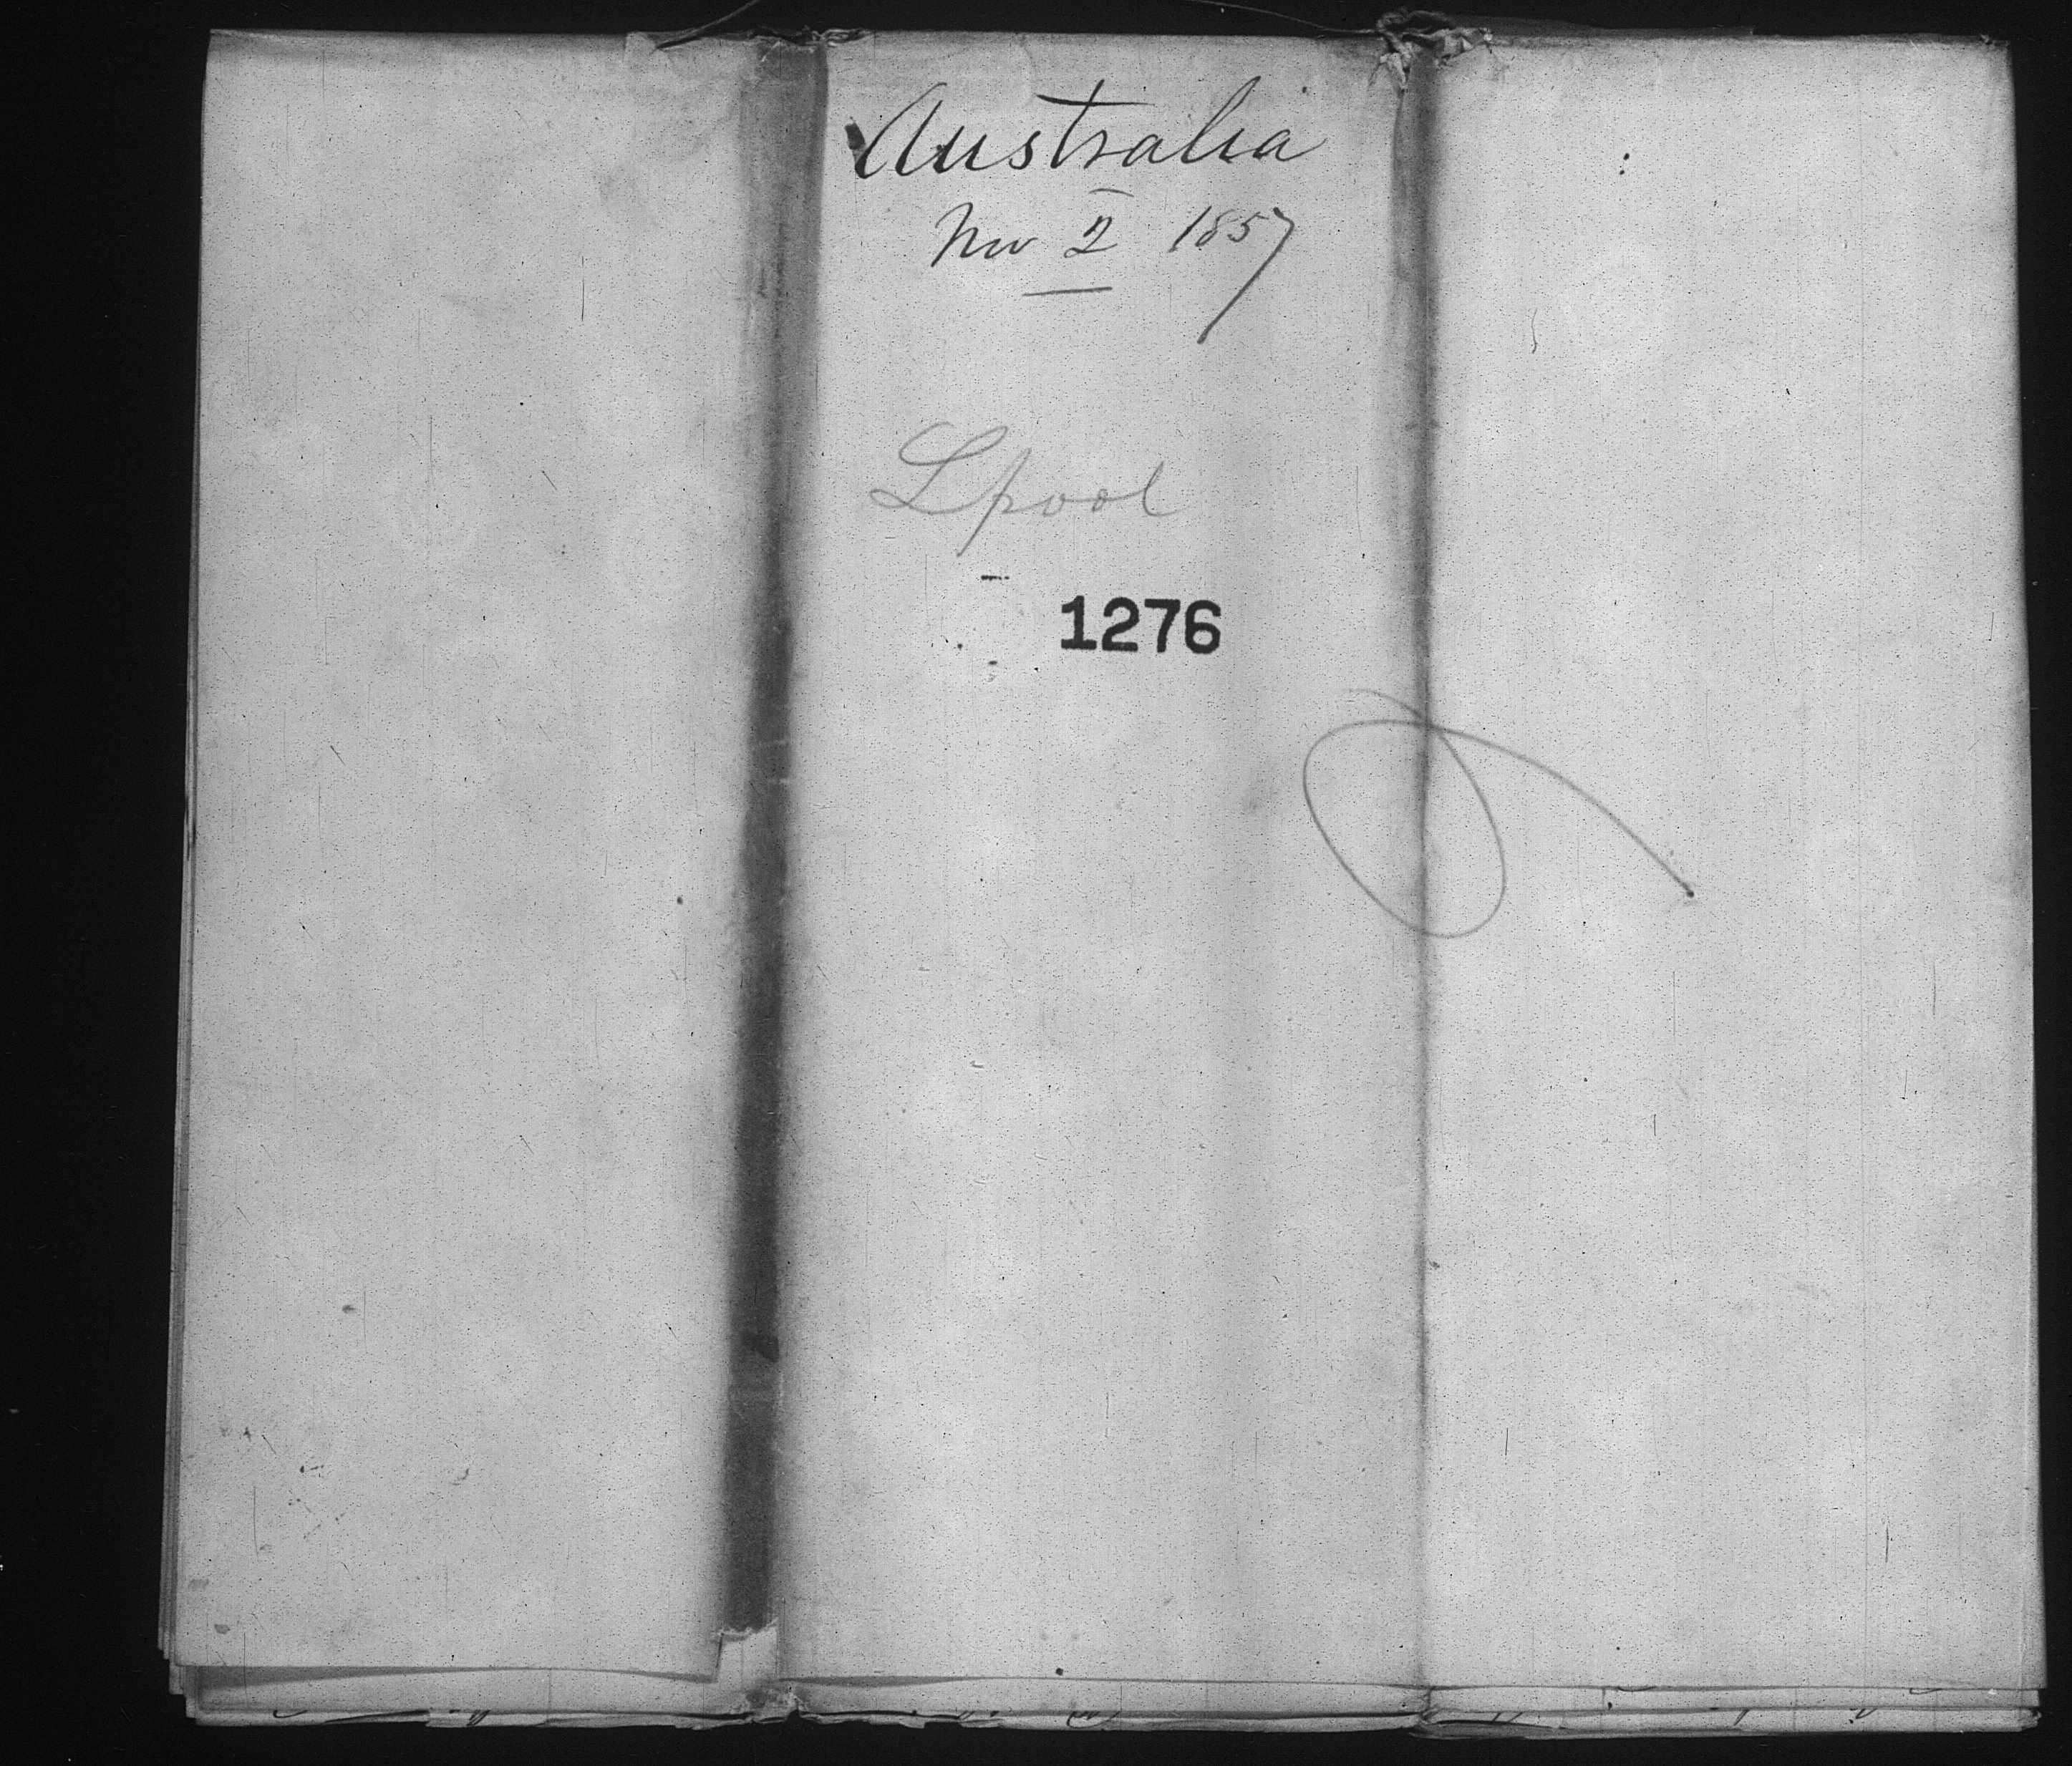 Australia
Nov 2 1857
Lpool
1276